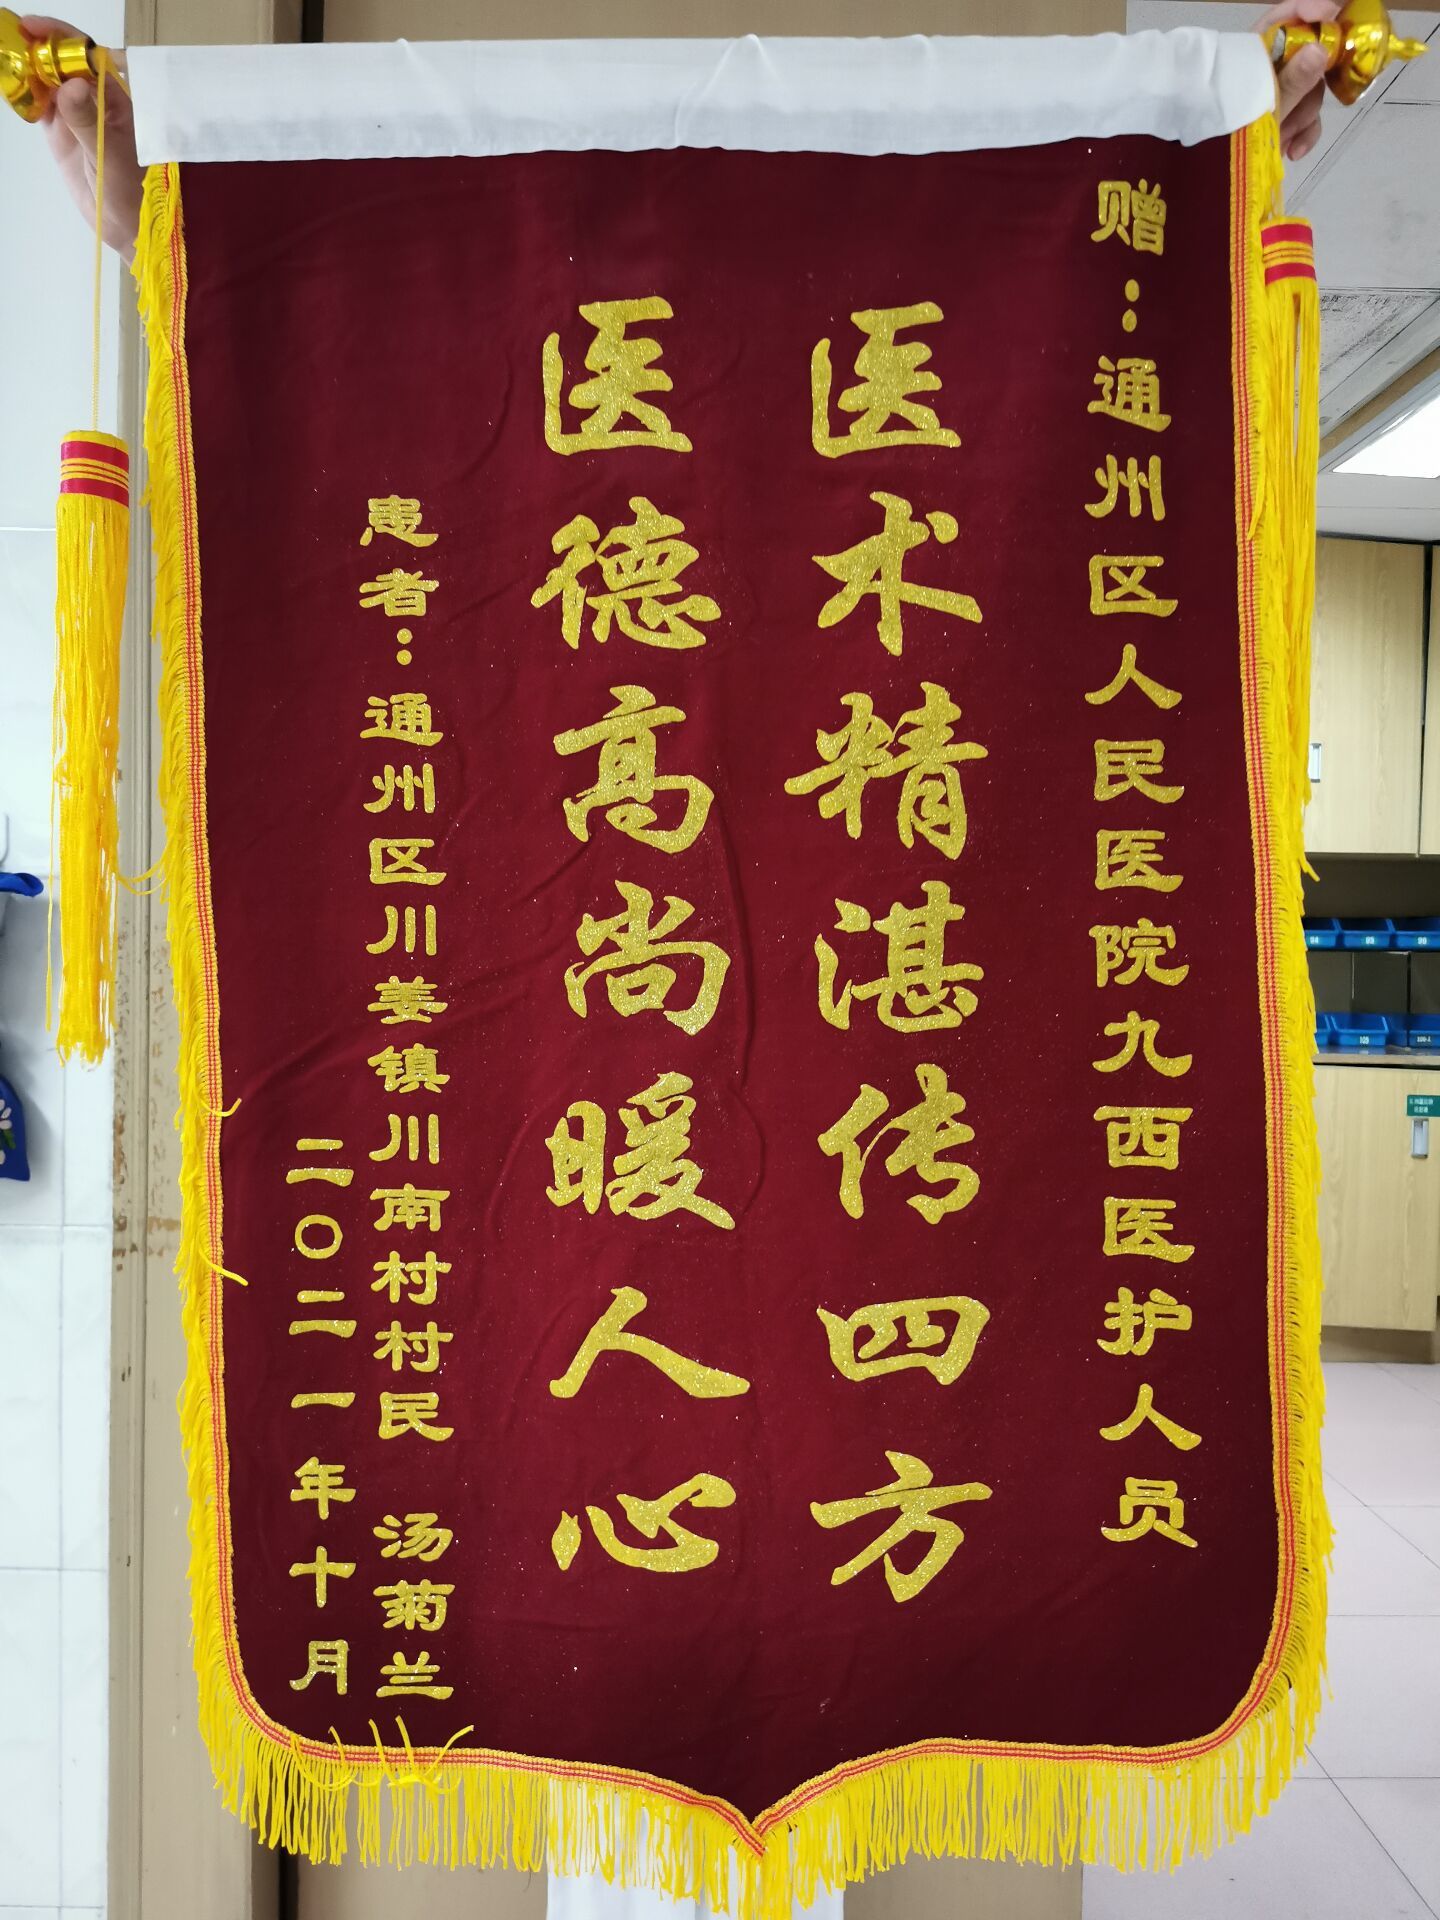 赠：通州区人民医院九西医护人员
医术精湛传四方
医德高尚暖人心
患者：通州区川姜镇川南村村民 汤菊兰
二〇二一年十月
94
95
96
109